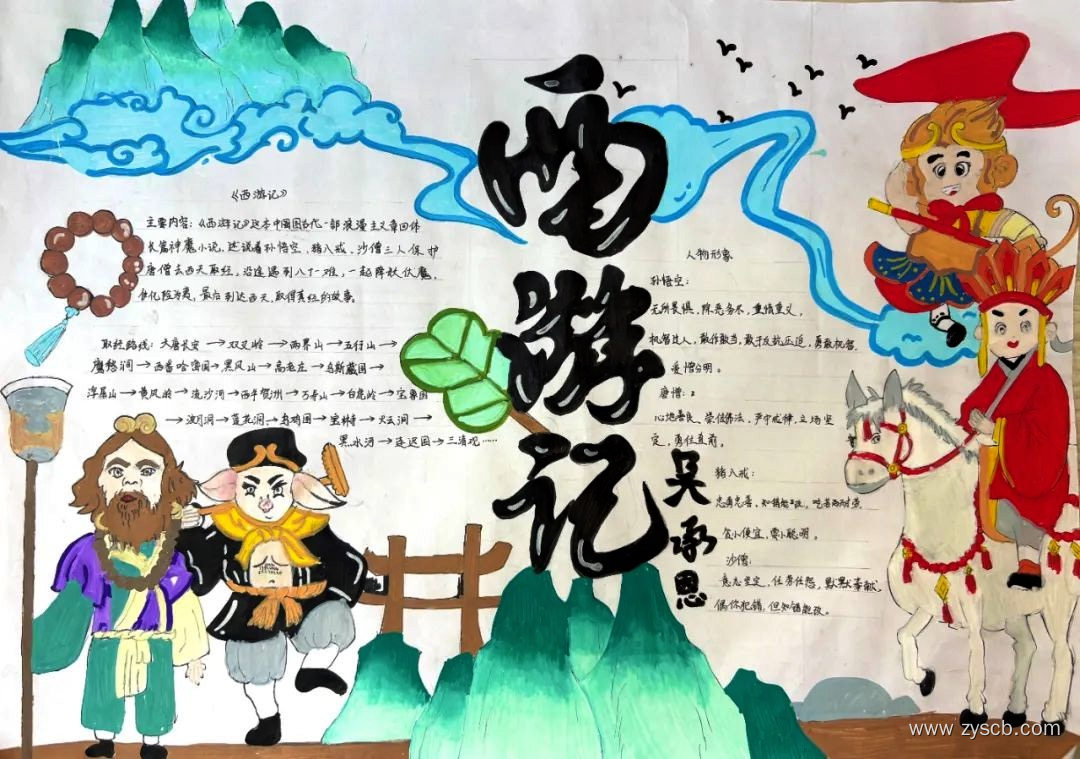 西游记
吴承恩
《西游记》
主要内容：《西游记》这本中国古代一部浪漫主义章回体
长篇神魔小说，述说着孙悟空、猪八戒、沙僧三人保护
唐僧去西天取经，沿途遇到八十一难，一起降妖伏魔，
化险为夷，最后到达西天，取得真经的故事。
取经路线：大唐长安→双叉岭→两界山→五行山→
鹰愁涧→西番哈咇国→黑风山→高老庄→乌斯藏国→
浮屠山→黄风岭→流沙河→西牛贺洲→万寿山→白虎岭→宝象国
→波月洞→莲花洞→乌鸡国→宝林寺→火云洞→
黑水河→车迟国→三清观……
人物形象
孙悟空：
无所畏惧，除恶务尽，重情重义，
机智过人，敢作敢当，敢于反抗压迫，勇敢机智，
爱憎分明。
唐僧：
心地善良，崇信佛法，严守戒律，立场坚
定，勇往直前。
猪八戒：
忠勇忠善，知错能改，吃苦而耐劳，
贪小便宜，耍小聪明。
沙僧：
意志坚定，任劳任怨，默默奉献，
偶尔犯错，但知错能改。
www.zyscb.com